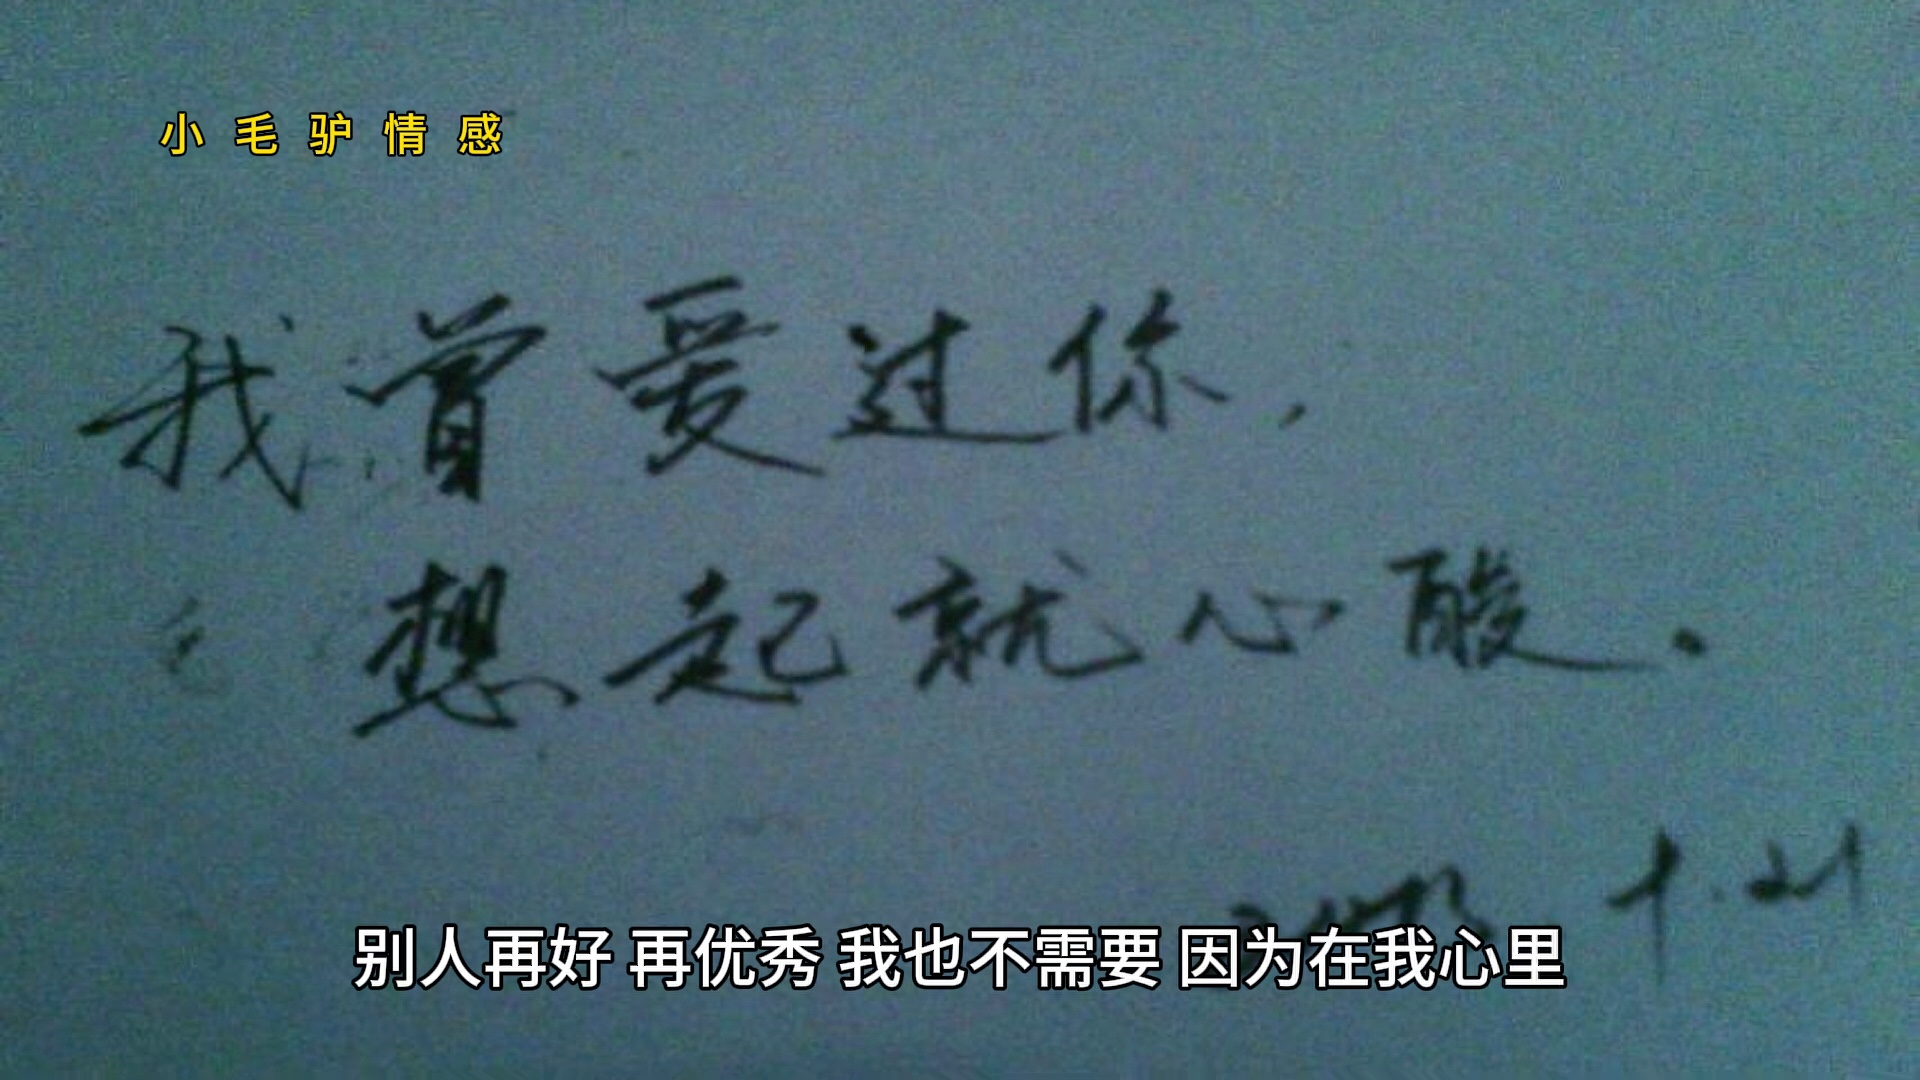 小毛驴情感
我曾爱过你，
想起就心酸。
别人再好 再优秀 我也不需要 因为在我心里